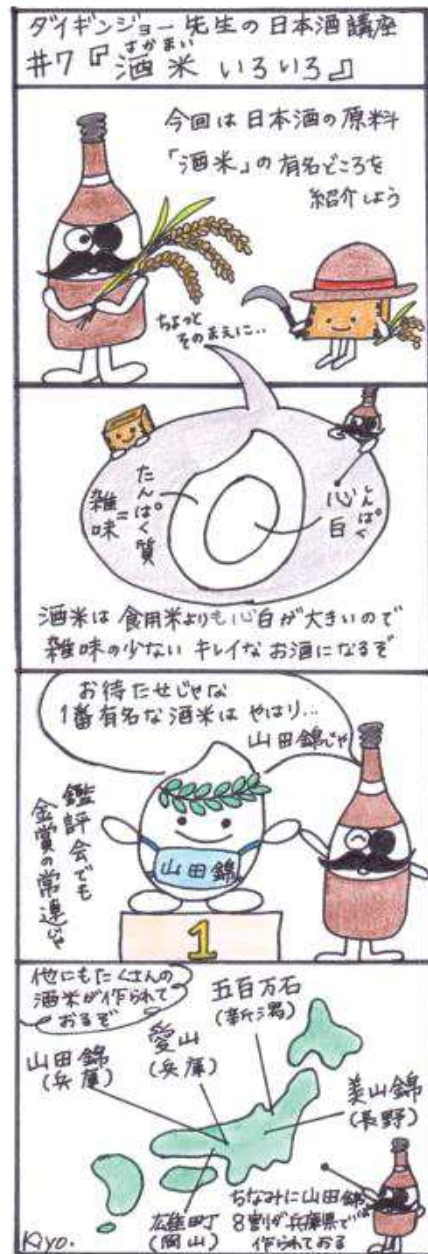 ダイギンジョー先生の日本酒講座
さかまい
#7『酒米 いろいろ』
今回は日本酒の原料
「酒米」の有名どころを
紹介しよう
ちょっと
そのまえに‥
たんぱく質
=
雑味
しんぱく
心白
酒米は食用米よりも心白が大きいので
雑味の少ない キレイなお酒になるぞ
お待たせじゃな
1番有名な酒米は やはり…
山田錦じゃ
鑑評会でも
金賞の常連じゃ
山田錦
1
他にもたくさんの
酒米が作られて
おるぞ
五百万石
(新潟)
愛山
(兵庫)
山田錦
(兵庫)
美山錦
(長野)
雄町
(岡山)
ちなみに山田錦は
8割が兵庫県で
作られておる
Kiyo.